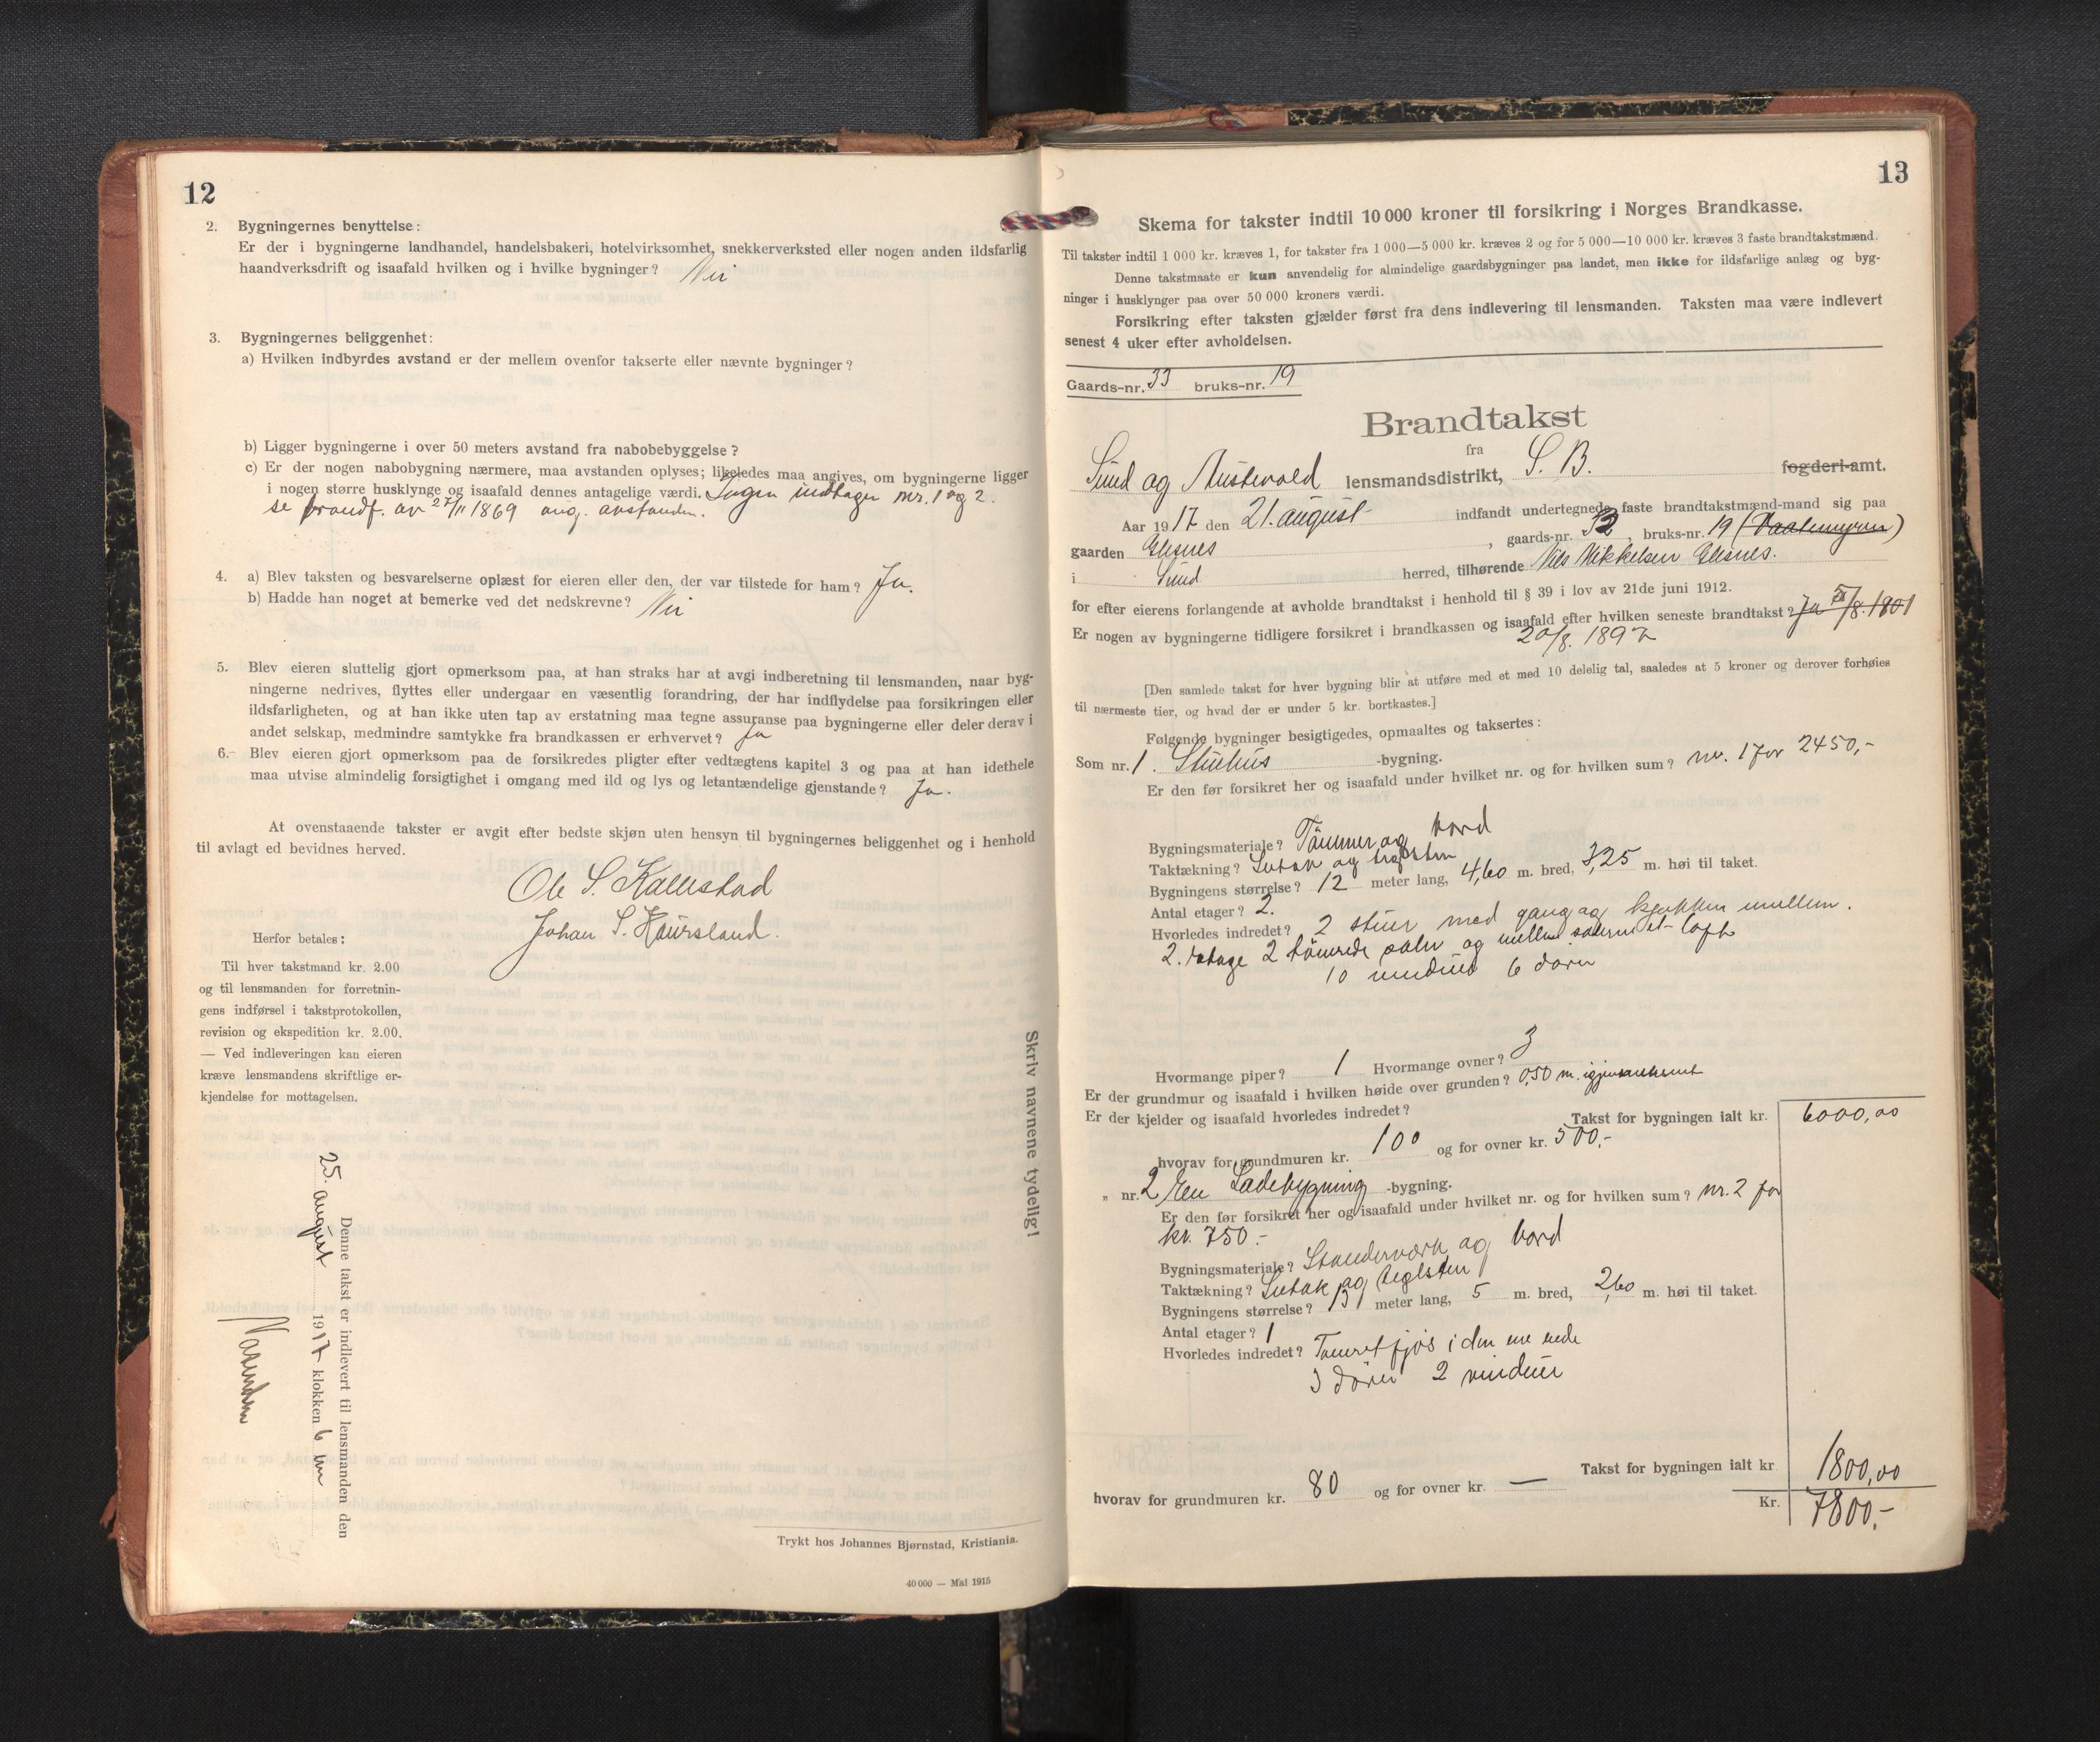 12
2. Bygningernes benyttelse:
Er der i bygningerne landhandel, handelsbakeri, hotelvirksomhet, snekkerverksted eller nogen anden ildsfarlig
haandverksdrift og isaafald hvilken og i hvilke bygninger? Nei
3. Bygningernes beliggenhet:
a) Hvilken indbyrdes avstand er der mellem ovenfor takserte eller nævnte bygninger?
b) Ligger bygningerne i over 50 meters avstand fra nabobebyggelse?
c) Er der nogen nabobygning nærmere, maa avstanden oplyses; likeledes maa angives, om bygningerne ligger
i nogen større husklynge og isaafald dennes antagelige værdi. Ingen undtagen nr. 1 og 2.
se brandf. av 27/11 1869 ang. avstanden.
4. a) Blev taksten og besvarelserne oplæst for eieren eller den, der var tilstede for ham? Ja.
b) Hadde han noget at bemerke ved det nedskrevne? Nei
5. Blev eieren sluttelig gjort opmerksom paa, at han straks har at avgi indberetning til lensmanden, naar byg-
ningerne nedrives, flyttes eller undergaar en væsentlig forandring, der har indflydelse paa forsikringen eller
ildsfarligheten, og at han ikke uten tap av erstatning maa tegne assuranse paa bygningerne eller deler derav i
andet selskap, medmindre samtykke fra brandkassen er erhvervet? Ja
6. Blev eieren gjort opmerksom paa de forsikredes pligter efter vedtægtens kapitel 3 og paa at han idethele
maa utvise almindelig forsigtighet i omgang med ild og lys og letantændelige gjenstande? Ja.
At ovenstaaende takster er avgit efter bedste skjøn uten hensyn til bygningernes beliggenhet og i henhold
til avlagt ed bevidnes herved.
Ole S. Kallestad
Johan S. Haursland.
Herfor betales:
Til hver takstmand kr. 2.00
og til lensmanden for forretnin-
gens indførsel i takstprotokollen,
revision og ekspedition kr. 2.00.
— Ved indleveringen kan eieren
kræve lensmandens skriftlige er-
kjendelse for mottagelsen.
Skriv navnene tydelig!
Denne takst er indlevert til lensmanden den
25. august 1917 klokken 6 em
Trykt hos Johannes Bjørnstad, Kristiania.
40 000 — Mai 1915
13
Skema for takster indtil 10 000 kroner til forsikring i Norges Brandkasse.
Til takster indtil 1 000 kr. kræves 1, for takster fra 1 000—5 000 kr. kræves 2 og for 5 000—10 000 kr. kræves 3 faste brandtakstmænd.
Denne takstmaate er kun anvendelig for almindelige gaardsbygninger paa landet, men ikke for ildsfarlige anlæg og byg-
ninger i husklynger paa over 50 000 kroners værdi.
Forsikring efter taksten gjælder først fra dens indlevering til lensmanden. Taksten maa være indlevert
senest 4 uker efter avholdelsen.
Gaards-nr. 33 bruks-nr. 19
Brandtakst
fra
Sund og Austevold lensmandsdistrikt, S. B. fogderi-amt.
Aar 1917 den 21. august indfandt undertegnede faste brandtakstmænd-mand sig paa
gaarden Glesnes, gaards-nr. 32, bruks-nr. 19
i Sund herred, tilhørende Nils Mikkelsen Glesnes.
for efter eierens forlangende at avholde brandtakst i henhold til § 39 i lov av 21de juni 1912.
Er nogen av bygningerne tidligere forsikret i brandkassen og isaafald efter hvilken seneste brandtakst? Ja /8. 1801
20/8. 1897
[Den samlede takst for hver bygning blir at utføre med et med 10 delelig tal, saaledes at 5 kroner og derover forhøies
til nærmeste tier, og hvad der er under 5 kr. bortkastes.]
Følgende bygninger besigtigedes, opmaaltes og taksertes:
Som nr. 1. Stuehus -bygning.
Er den før forsikret her og isaafald under hvilket nr. og for hvilken sum? nr. 1 for 2450,-
Bygningsmateriale? Tømmer og bord
Taktækning? Sutak og teglsten
Bygningens størrelse? 12 meter lang, 4,60 m. bred, 3,25 m. høi til taket.
Antal etager? 2.
Hvorledes indredet? 2 stuer med gang og kjøkken imellem.
2. etage 2 tømrede saler og mellem salerne et loft
10 vinduer 6 dører
Hvormange piper? 1 Hvormange ovner? 3
Er der grundmur og isaafald i hvilken høide over grunden? 0,50 m.
Er der kjelder og isaafald hvorledes indredet? Takst for bygningen ialt kr. 6000,00
hvorav for grundmuren kr. 100 og for ovner kr. 500,-
„ nr. 2 Een Ladebygning -bygning.
Er den før forsikret her og isaafald under hvilket nr. og for hvilken sum? nr. 2 for
kr. 750.-
Bygningsmateriale? Standerverk og bord
Taktækning? Sutak og teglsten
Bygningens størrelse? 13 meter lang, 5 m. bred, 2,60 m. høi til taket.
Antal etager? 1
Hvorledes indredet? Tømret fjøs i den ene ende
3 dører 2 vinduer
Takst for bygningen ialt kr 1800,00
hvorav for grundmuren kr. 80 og for ovner kr. —
Kr. 7800,-